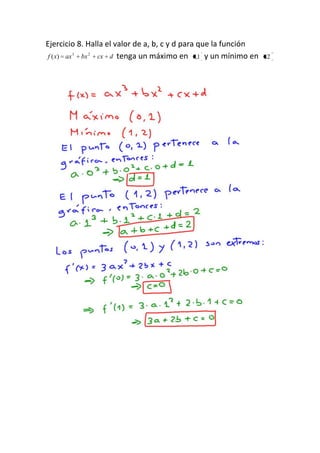 Ejercicio 8. Halla el valor de a, b, c y d para que la función
f(x) = ax³ + bx² + cx + d tenga un máximo en y un mínimo en
f(x) = ax³ + bx² + cx + d
Máximo (0,2)
Mínimo (1,2)
El punto (0,2) pertenece a la
gráfica, entonces:
a·0³ + b·0² + c·0 + d = 1
→ d = 1
El punto (1,2) pertenece a la
gráfica, entonces:
a·1³ + b·1² + c·1 + d = 2
→ a + b + c + d = 2
Los puntos (0,1) y (1,2) son extremos:
f'(x) = 3ax² + 2bx + c
→ f'(0) = 3·a·0² + 2b·0 + c = 0
→ c = 0
→ f'(1) = 3·a·1² + 2·b·1 + c = 0
→ 3a + 2b + c = 0